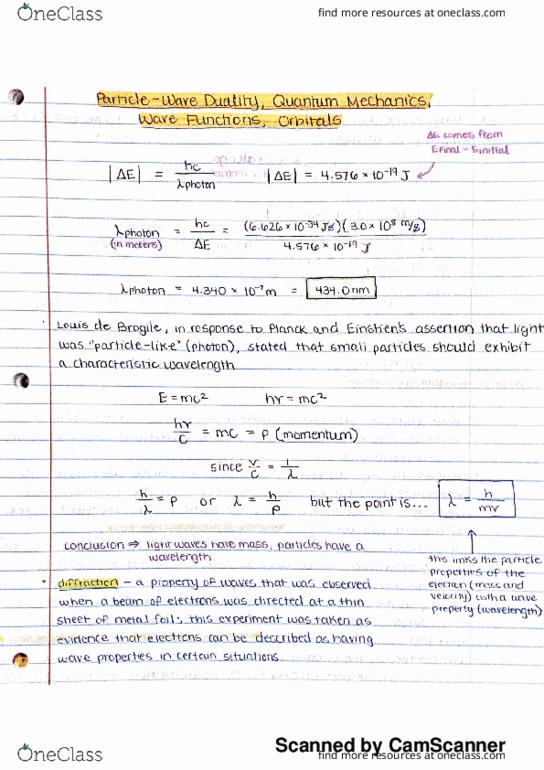 OneClass
find more resources at oneclass.com
Particle-Wave Duality, Quantum Mechanics,
Wave Functions, Orbitals
ΔE comes from
Efinal - Einitial
|ΔE| = hc/λphoton |ΔE| = 4.576 × 10⁻¹⁹ J
λphoton = hc/ΔE = (6.626 × 10⁻³⁴ Js)(3.0 × 10⁸ m/s)/4.576 × 10⁻¹⁹ J
(in meters)
λphoton = 4.340 × 10⁻⁷ m = 434.0 nm
· Louis de Brogile, in response to Planck and Einstien's assertion that light
was "particle-like" (photon), stated that small particles should exhibit
a characteristic wavelength
E = mc² hν = mc²
hν/c = mc = p (momentum)
since ν/c = 1/λ
h/λ = p or λ = h/p but the point is... λ = h/mv
conclusion ⇒ light waves have mass, particles have a
wavelength
this links the particle
properties of the
electron (mass and
velocity) with a wave
property (wavelength)
· diffraction - a property of waves that was observed
when a beam of electrons was directed at a thin
sheet of metal foil; this experiment was taken as
evidence that electrons can be described as having
wave properties in certain situations
Scanned by CamScanner
OneClass
find more resources at oneclass.com